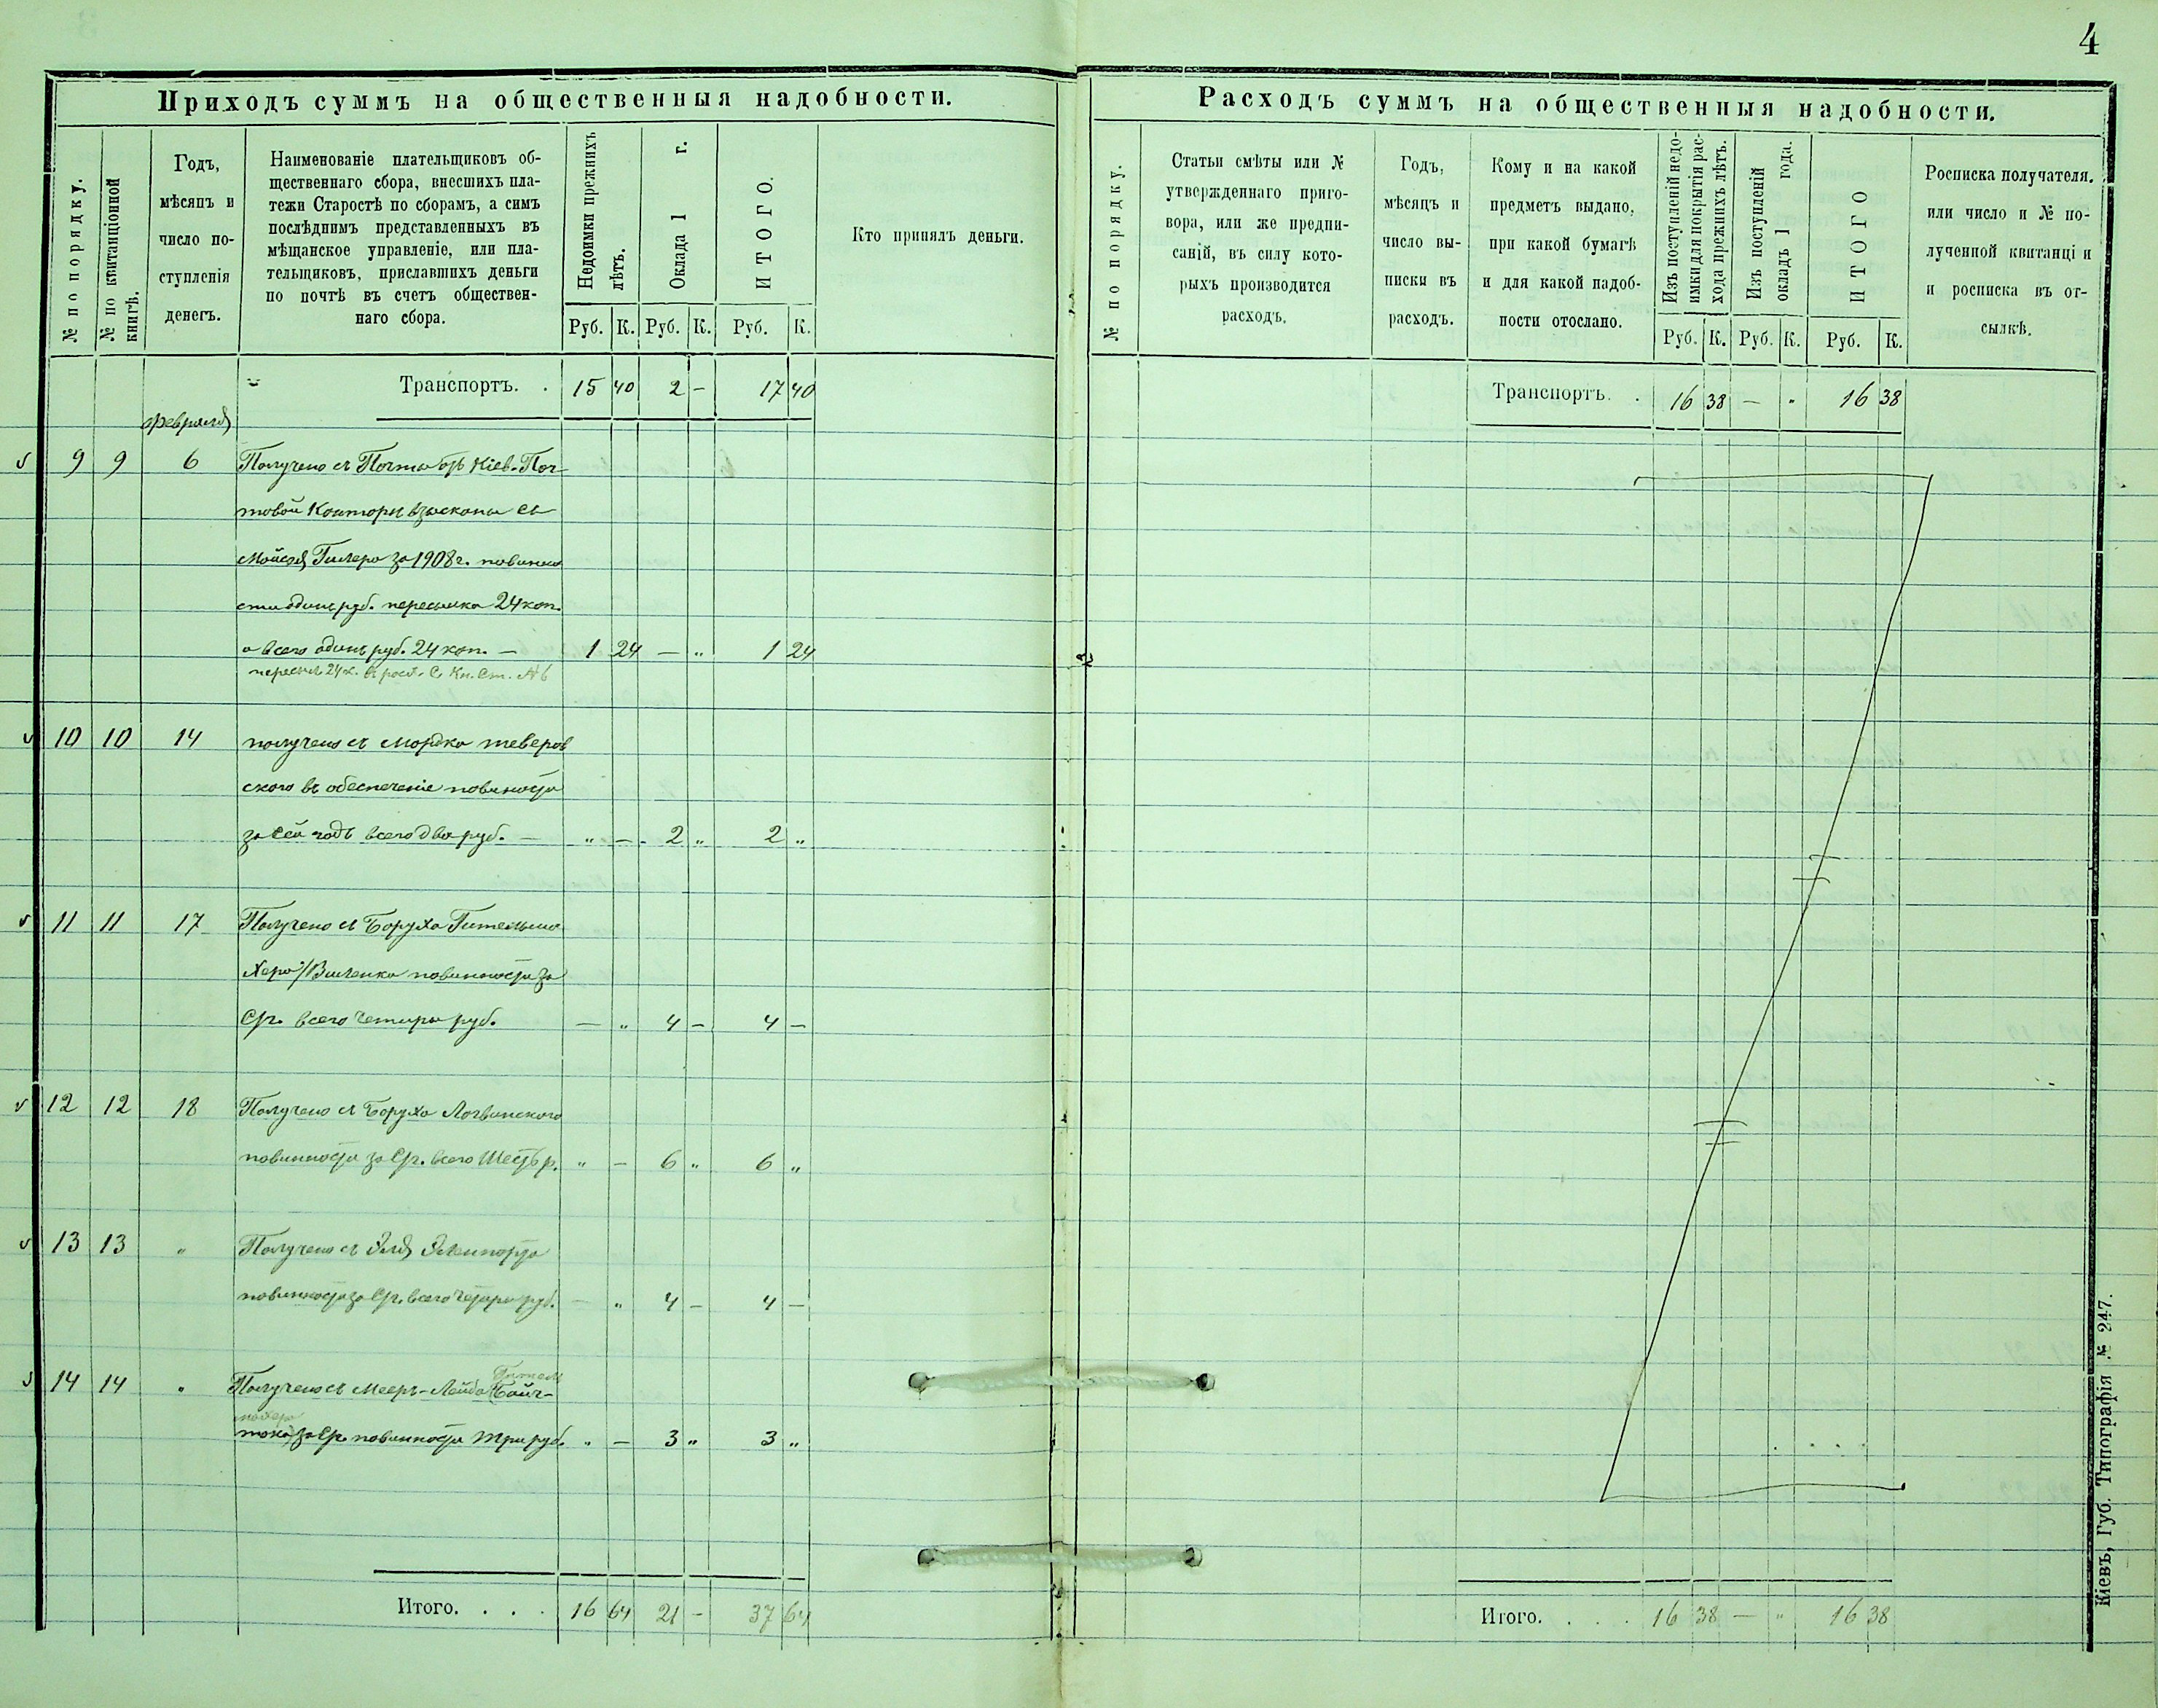 4
Приходъ суммъ на общественныя надобности.
№ по порядку.
№ по квитанціонной книгѣ.
Годъ,
мѣсяцъ и
число по-
ступленія
денегъ.
Наименованіе плательщиковъ об-
щественнаго сбора, внесшихъ пла-
тежи Старостѣ по сборамъ, а симъ
послѣднимъ представленныхъ въ
мѣщанское управленіе, или пла-
тельщиковъ, приславшихъ деньги
по почтѣ въ счетъ обществен-
наго сбора.
Недоимки прежнихъ
лѣтъ.
Оклада 1 г.
ИТОГО.
Кто принялъ деньги.
Руб. К. Руб. К. Руб. К.
Транспортъ. . 15 40 2 - 17 40
Февраля
9 9 6 Получено съ Почта отъ Кіев. Поч-
товой Конторы взыскан съ
Мойсея Гилера за 1908 г. повинно
сти одинъ руб. пересылка 24 коп.
а всего одинъ руб. 24 коп. — 1 24 — " 1 24
10 10 14 получено съ Мордка Тверов
ского въ обеспеченіе повиности
за сей годъ всего два руб. — " — 2 " 2 "
11 11 17 Получено съ Боруха Гительма
хера / Виленка повинности за
Сг. всего четыри руб. — " 4 — 4 —
12 12 18 Получено съ Боруха Логвинского
повинности за Сг. всего Шесть р. " — 6 " 6 "
13 13 " Получено съ
повинности за Сг. всего четыри руб. — " 4 — 4 —
14 14 " Получено съ Меер-Лейба
за Сг. повинности три руб. " — 3 " 3 "
Итого. . . . 16 64 21 - 37 64
Расходъ суммъ на общественныя надобности.
№ по порядку.
Статьи смѣты или №
утвержденнаго приго-
вора, или же предпи-
саній, въ силу кото-
рыхъ производится
расходъ.
Годъ,
мѣсяцъ и
число вы-
писки въ
расходъ.
Кому и на какой
предметъ выдано,
при какой бумагѣ
и для какой надоб-
ности отослано.
Изъ поступленій недо-
имки для покрытія рас-
хода прежнихъ лѣтъ.
Изъ поступленій
окладъ 1 года.
ИТОГО
Росписка получателя,
или число и № по-
лученной квитанціи
и росписка въ от-
сылкѣ.
Руб. К. Руб. К. Руб. К.
Транспортъ. . 16 38 — " 16 38
Итого. . . . 16 38 — " 16 38
Кіевъ, Губ. Типографія № 247.